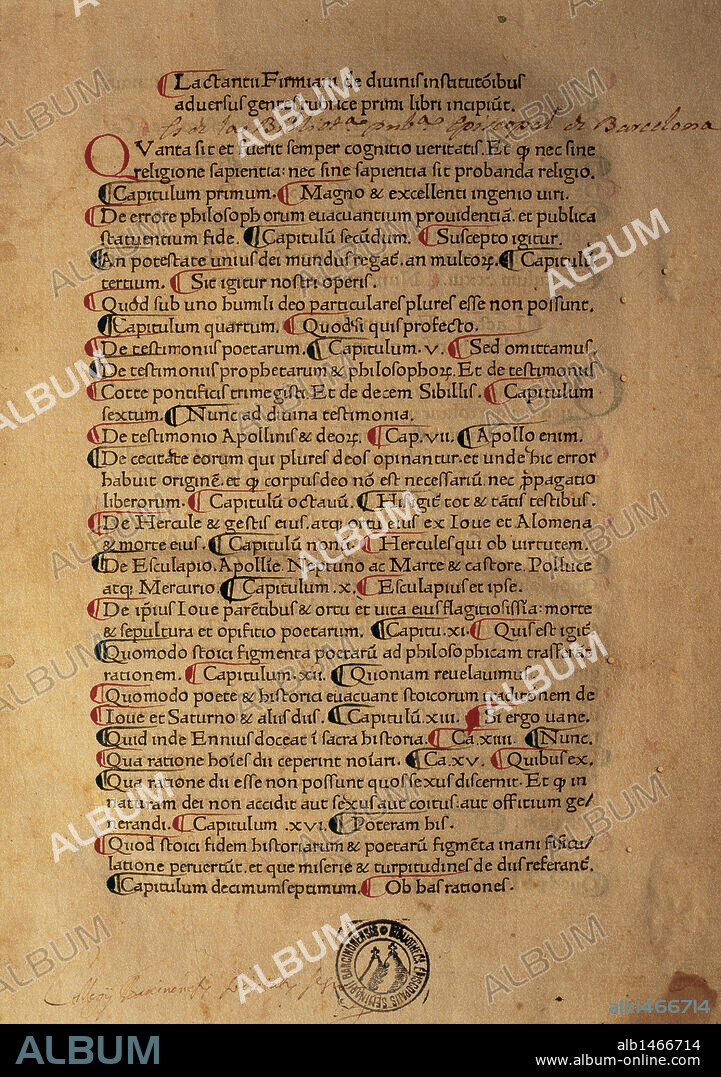 Lactantii Firmiani de diuinis institutōibus
aduersus gentes rubrice primi libri incipiūt.
Es de la Bibliot.ᵃ pub.ᵃ Episcopal de Barcelona
QVanta sit et fuerit semper cognitio ueritatis. Et ꝙ nec sine
religione sapientia: nec sine sapientia sit probanda religio.
¶Capitulum primum. ¶ Magno & excellenti ingenio uiri.
¶De errore philosophorum euacuantium prouidentiā. et publica
statuentium fide. ¶Capitulū secūdum. ¶Suscepto igitur.
¶An potestate unius dei mundus regat̄. an multoꝝ. ¶Capitulū
tertium. ¶ Sit igitur nostri operis.
¶Quod sub uno humili deo particulares plures esse non possunt.
¶Capitulum quartum. ¶Quodsi quis profecto.
¶De testimoniis poetarum. ¶ Capitulum .v. ¶ Sed omittamus
¶De testimoniis prophetarum & philosophoꝝ. Et de testimoniis
¶Cotte pontificis trimegisti. Et de decem Sibillis. ¶ Capitulum
sextum. ¶Nunc ad diuina testimonia.
¶De testimonio Apollinis & deoꝝ. ¶Cap. vii. ¶Apollo enim.
¶De cecitate eorum qui plures deos opinantur. et unde hic error
habuit originē. et ꝙ corpus deo nō est necessariū nec ꝓpagatio
liberorum. ¶Capitulū octauū. ¶ His igit̄ tot & tātis testibus.
¶De Hercule & gestis eius. atqꝫ ortu eius ex Ioue et Alomena
& morte eius. ¶Capitulū nonū. ¶Hercules qui ob uirtutem.
¶De Esculapio. Apollīe. Neptuno ac Marte & castore. Polluce
atqꝫ Mercurio. ¶Capitulum .x. ¶Esculapius et ipse.
¶De ip̄ius Ioue parētibus & ortu et uita eius flagitiosissīa: morte
& sepultura et opifitio poetarum. ¶Capitu. xi. ¶ Quis est igit̄
¶Quomodo stoici figmenta poetarū ad philosophicam trasferāt
rationem. ¶Capitulum .xii. ¶Quoniam reuelauimus
¶Quomodo poete & historici euacuant stoicorum traditionem de
¶Ioue et Saturno & aliis diis. ¶Capitulū. xiii. ¶Si ergo uane.
¶Quid inde Ennius doceat ī sacra historia. ¶Ca. xiiii. ¶Nunc.
¶Qua ratione hoīes dii ceperint noīari. ¶Ca. xv. ¶Quibus ex.
¶Qua ratione dii esse non possunt quos sexus discernit. Et ꝙ in
naturam dei non accidit aut sexus aut coitus: aut offitium ge/
nerandi. ¶Capitulum .xvi. ¶Poteram his.
¶Quod stoici fidem historiarum & poetarū figmēta inani fisicu/
latione peruertūt. et que miserie & turpitudines de diis referant̄.
¶Capitulum decimumseptimum. ¶ Ob has rationes.
BIBLIOTHECA EPISCOPALIS SEMINARII BARCINONENSIS
ALBUM
alb1466714
ALBUM
alb1466714
www.album-online.com